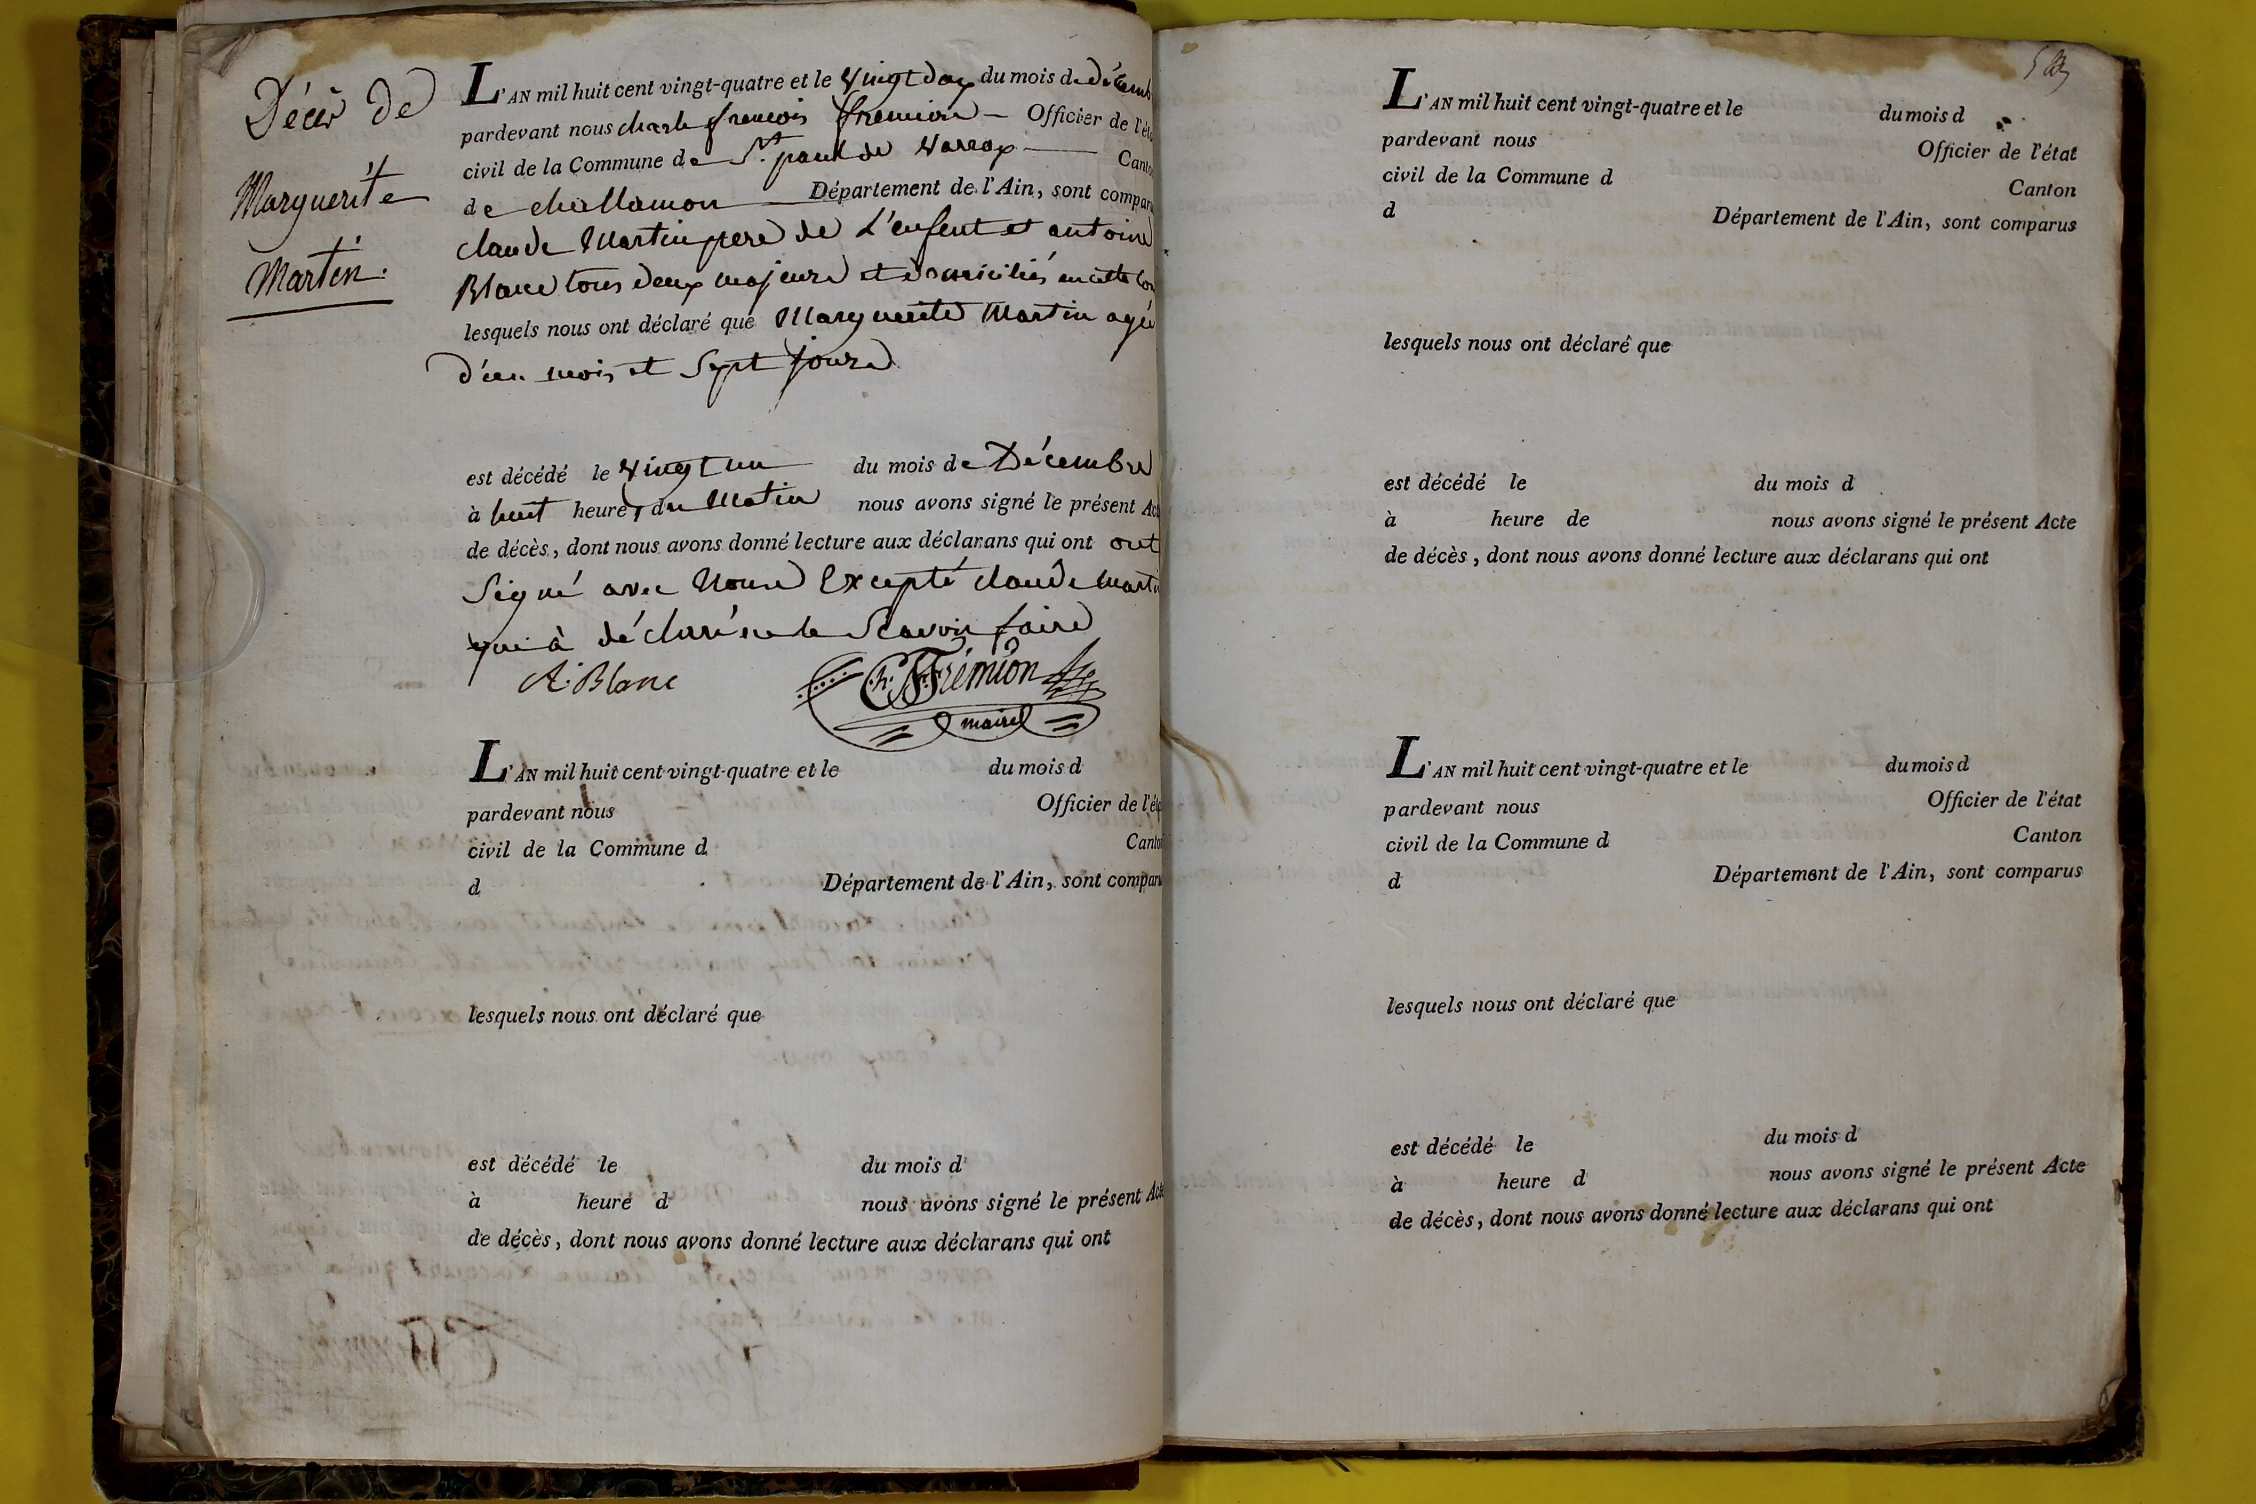 Décès de
Marguerite
Martin.
L'AN mil huit cent vingt-quatre et le vingt deux du mois de Décemb
pardevant nous charle francois fremion — Officier de l'éta
civil de la Commune de St. paul de Varax — Canto
de challamon — Département de l'Ain, sont comparu
claude Martin pere de L'enfent et antoine
Blanc tous deux majeurs et domiciliés en cette Com
lesquels nous ont déclaré que Marguerite Martin agée
d'un mois et Sept jours
est décédé le vingt un du mois de Décembre
à huit heures du Matin nous avons signé le présent Act
de décès, dont nous avons donné lecture aux déclarans qui ont ont
Signé avec Nous Excepté claude Martin
qui à déclaré ne le Scavoir faire
A. Blanc
Ch. F. Frémion
maire
L'AN mil huit cent vingt-quatre et le du mois d
pardevant nous Officier de l'éta
civil de la Commune d Canton
d Département de l'Ain, sont comparu
lesquels nous ont déclaré que
est décédé le du mois d
à heure d nous avons signé le présent Acte
de décès, dont nous avons donné lecture aux déclarans qui ont
L'AN mil huit cent vingt-quatre et le du mois d
pardevant nous Officier de l'état
civil de la Commune d Canton
d Département de l'Ain, sont comparus
lesquels nous ont déclaré que
est décédé le du mois d
à heure de nous avons signé le présent Acte
de décès, dont nous avons donné lecture aux déclarans qui ont
L'AN mil huit cent vingt-quatre et le du mois d
pardevant nous Officier de l'état
civil de la Commune d Canton
d Département de l'Ain, sont comparus
lesquels nous ont déclaré que
est décédé le du mois d
à heure d nous avons signé le présent Acte
de décès, dont nous avons donné lecture aux déclarans qui ont